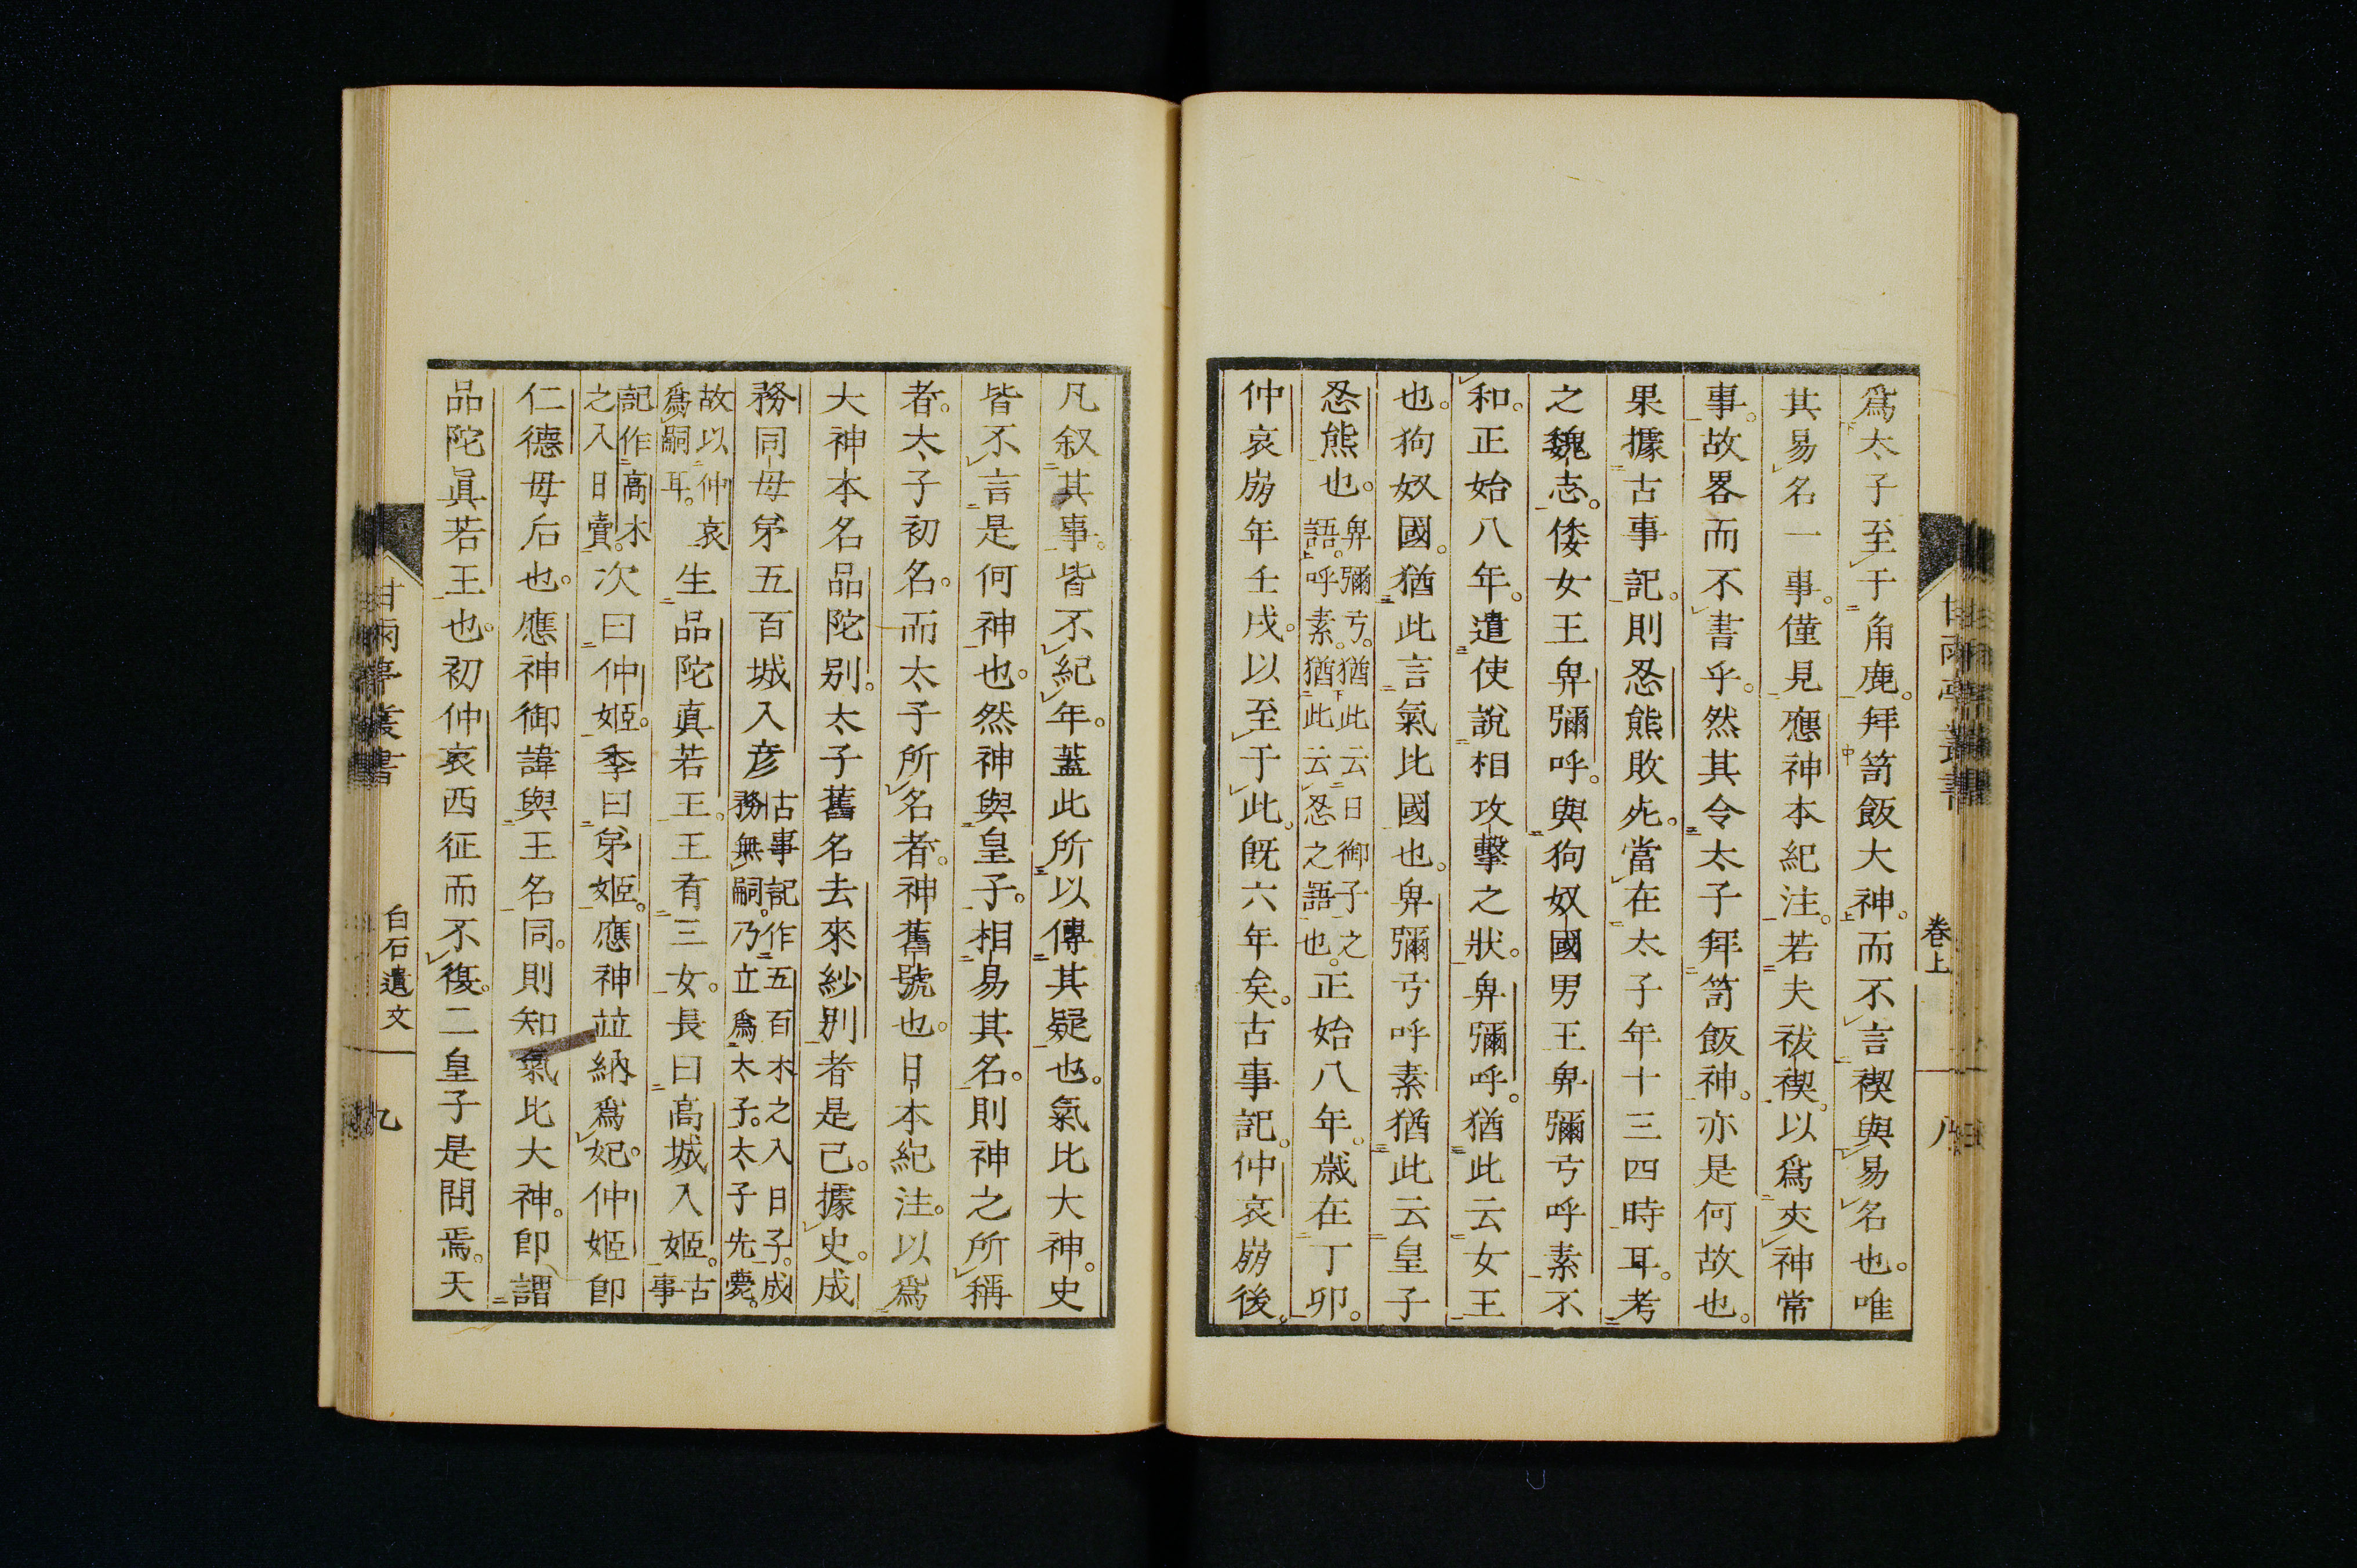 爲太子至于角鹿。拜笥飯大神。而不言禊與易名也。唯
其易名一事。僅見應神本紀注。若夫祓禊。以爲夾神常
事。故畧而不書乎。然其令太子拜笥飯神。亦是何故也。
果據古事記。則忍熊敗死。當在太子年十三四時耳。考
之魏志。倭女王卑彌呼。與狗奴國男王卑彌弓呼素不
和。正始八年。遣使說相攻擊之狀。卑彌呼。猶此云女王
也。狗奴國。猶此言氣比國也。卑彌弓呼素猶此云皇子
忍熊也。卑彌弓。猶此云日御子之語。呼素。猶此云忍之語也。正始八年。歲在丁卯。
仲哀崩年壬戌。以至于此。既六年矣。古事記。仲哀崩後。
甘雨亭叢書 卷上 八
凡叙其事。皆不紀年。蓋此所以傳其疑也。氣比大神。史
皆不言是何神也。然神與皇子。相易其名。則神之所稱
者。太子初名。而太子所名者。神舊號也。日本紀注。以爲
大神本名品陀別。太子舊名去來紗別者是已。據史。成
務同母弟五百城入彦古事記作五百木之入日子。成務無嗣。乃立爲太子。太子先薨。
故以仲哀爲嗣耳。生品陀真若王。王有三女。長曰高城入姬。古事
記作高木之入日賣。次曰仲姬。季曰弟姬。應神竝納爲妃。仲姬卽
仁德母后也。應神御諱與王名同。則知氣比大神。卽謂
品陀眞若王也。初仲哀西征而不復。二皇子是問焉。天
甘雨亭叢書 白石遺文 九